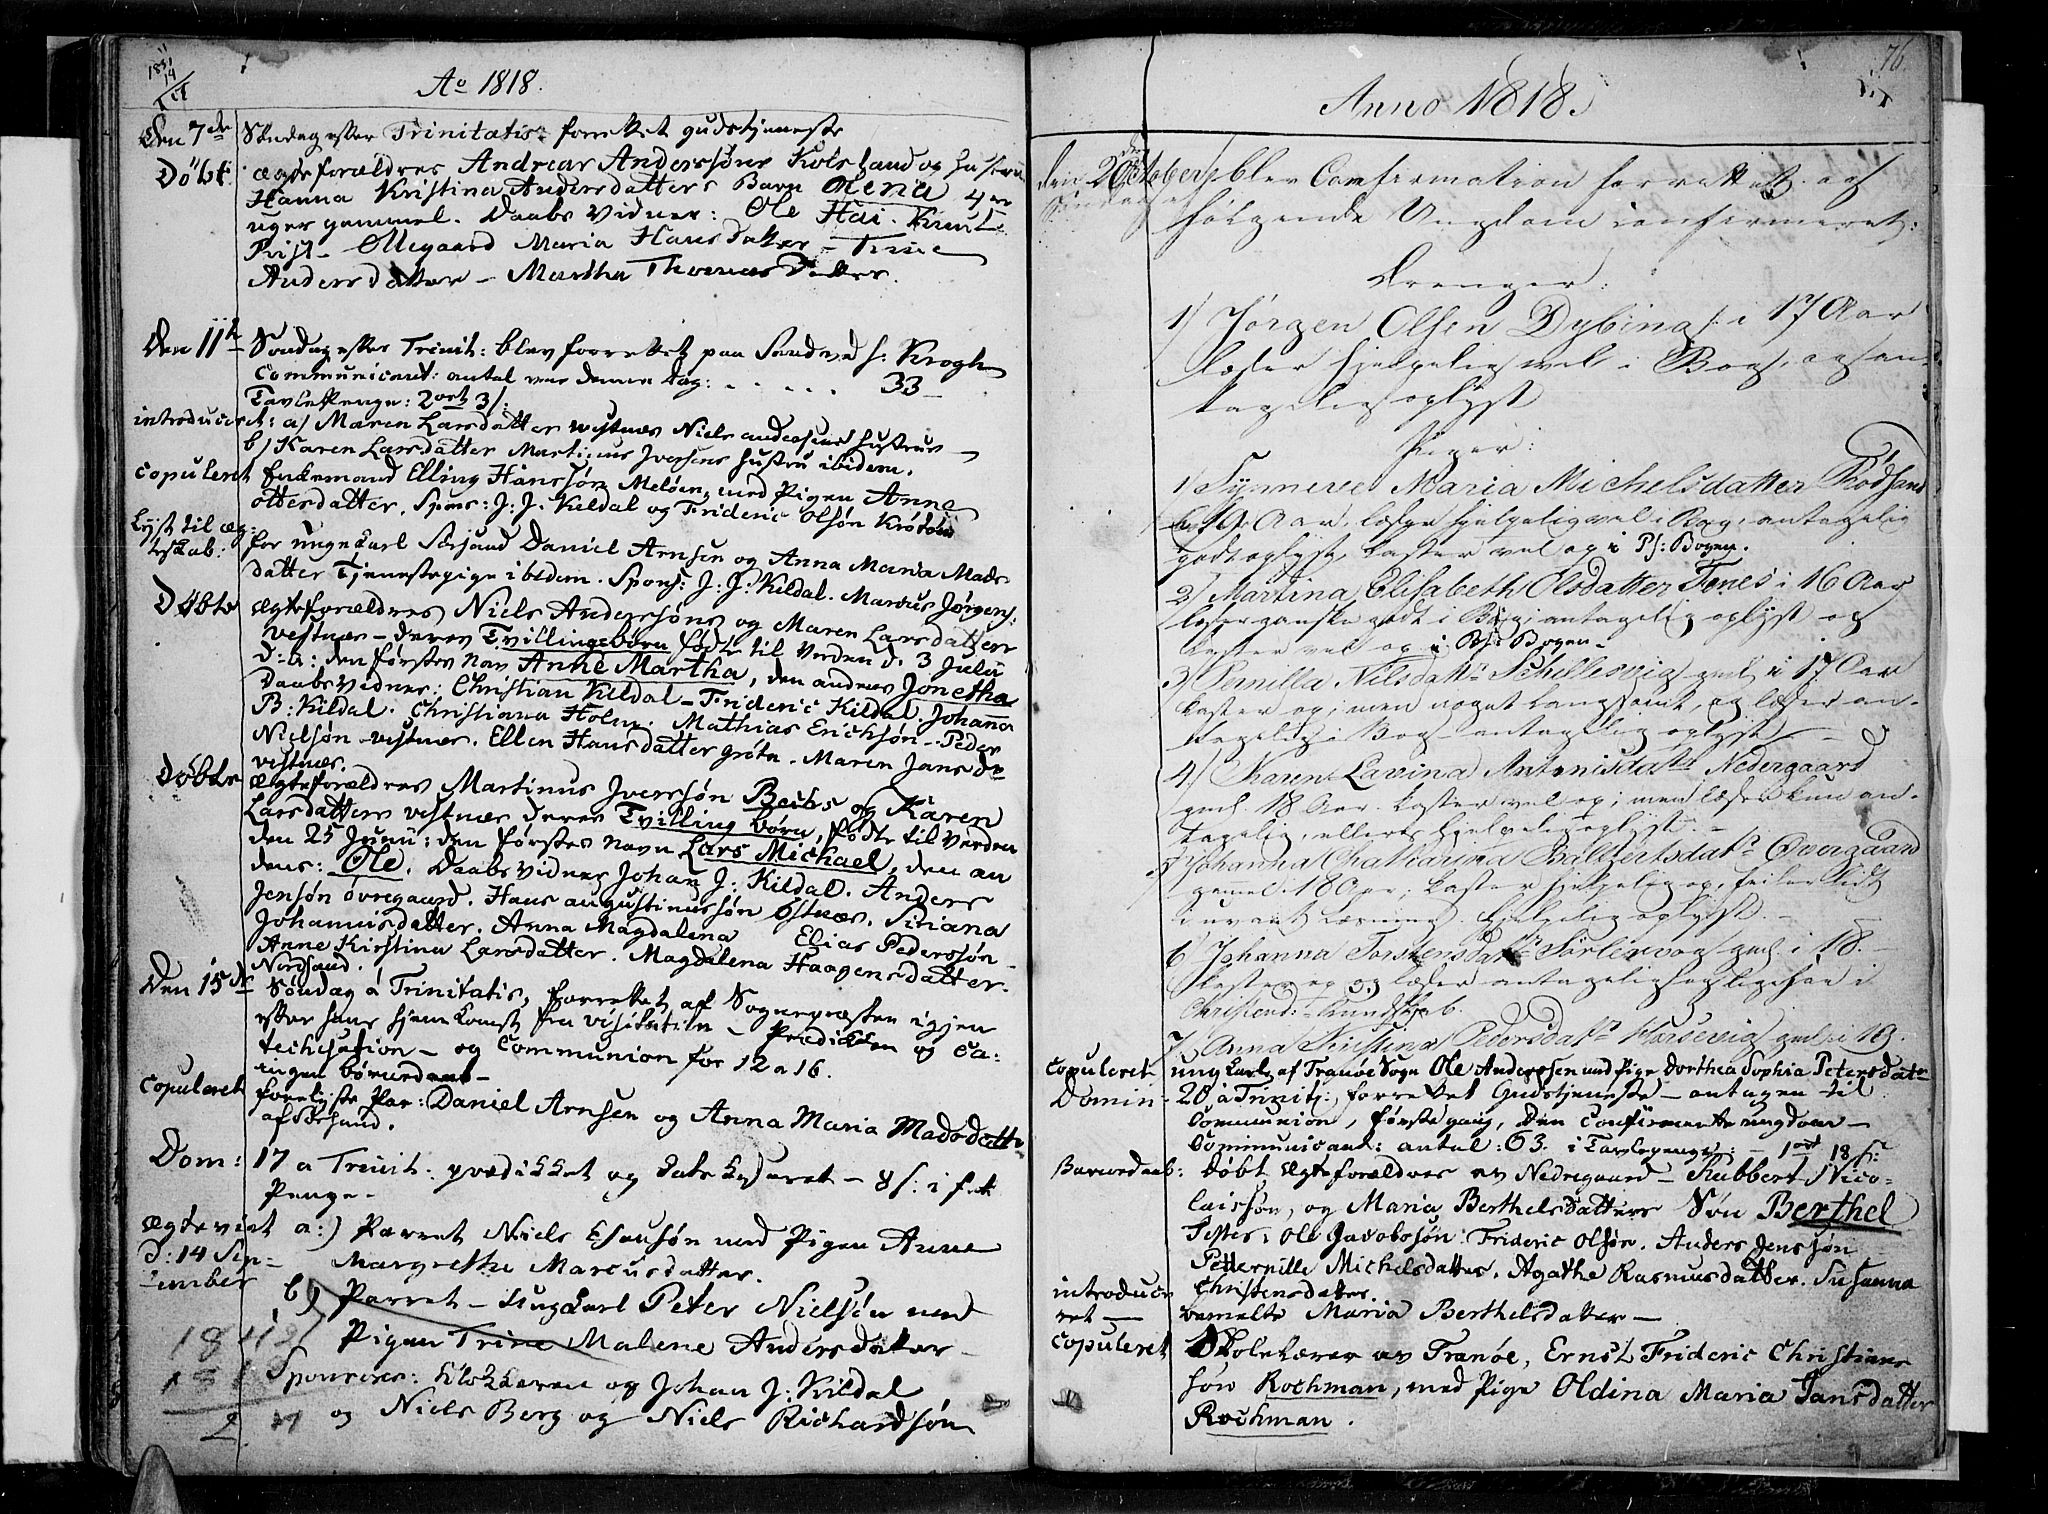 Ao 1818.
Den 7de Søndag efter Trinitatis forrettet gudstjeneste
Døbt ægteforældres Andreas Anderssøns Kolsland og hustrue
Hanna Kristina Andersdatters Barn Olena 4re
uger gammel. Daabs Vidner: Ole Hai. Knut
Rist - Ollegaard Maria Hansdatter - Trine
Andersdatter - Martha Thomasdatter.
Den 11te Søndag efter Trinit: blev forrettet paa Sandved h: Krogh
Communicant: antal var denne Dag: . . . . . 33
Tavlepenge: 2 ort 3 s:
introduceret: a) Maren Larsdatter vestnæs Niels andersens hustrue
b) Karen Larsdatter Martinus Iversens hustru ibidem.
Copuleret Enkemand Elling Hanssøn Meløen, med Pigen Anne
ottersdatter, Spons: J. J. Kildal og Frideric olsøn
Lyst til æg-
teskab: for ungekarl Daniel Arnsen og Anna Maria Mads-
datter Tjenestepige ibidem. Spons: J. J. Kildal. Marcus Jørgens:
Døbte ægteforældres Niels Anderssøns og Maren Larsdatters
vestnæs - deres Tvillingebørn fødte til Verden d. 3 Julii
d: a: den førstes nav Anne Martha, den andres Jonetha
Daabsvidner: Christian Kildal - Frideric Kildal. Johanna
B: Kildal. Christiana Holm. Mathias Erichsøn - Peder
Nielsøn vestnæs. Ellen Hansdatter grøtn. Maren Jansdr
vestnæs.
Døbte ægteforældres Martinus Iverssøn Bechs og Karen
Larsdatters vestnæs deres Tvilling børn, fødte til Verden
den 25 Junii: den førstes navn Lars Michael, den an
dens: Ole. Daabsvidner Johan J: Kildal. Anders
Jensøn øvregaard. Hans augustinussøn østnæs. Siriana
Johannisdatter. Anna Magdalena Elias Pederssøn
Anne Kirstina Larsdatter. Magdalena Haagensdatter.
Nordsand.
Den 15de Søndag a Trinitatis, forrettet af Sognepræsten igjen
efter hans hjemkomst fra visitatien - Prædikken og Ca:
techisation - og Communion for 12 a 16.
ingen børnedaab -
Copuleret foreløste Par: Daniel Arnsen og Anna Maria Madsdatter
Dom: 17 a Trinit: prædikket og Catechiseret - 8 s: i
Penge -
ægteviet a:) Parret Niels Esausøn med Pigen Anne
d: 14 Sep- Margrethe Marcusdatter.
tember b) Parret - Ungkarl Peter Nielsøn med
Pigen Trine Malene Andersdatter -
Sponsores: Klokkeren og Johan J: Kildal
og Niels Berg og Niels Richardsøn
76.
Anno 1818.
den October blev Confirmation forrettet og
følgende Ungdom confirmeret:
Drenger:
1) Jørgen Olsen Dybing i 17 Aar
læser hjelpelig vel i Bog, og an-
tagelig oplyst
Piger:
1) Synnerve Maria Michelsdatter Rødsand
19 Aar, læser hjelpelig vel i Bog, antagelig
godt oplyst, kaster vel op i Ps: Bogen.
2) Martina Elisabeth Olsdatter Fones i 16 Aar
læser ganske godt i Bog, antagelig oplyst og
kaster vel op i Ps: Bogen -
3) Pernilla Nilsdatr Schillesvig gml i 17 Aar
kaster op, men noget langsomt, og læser an-
tagelig i Bog - antagelig oplyst -
4) Karen Lavina Antonisdatr Nedergaard
gml. 18 Aar. kaster vel op; men læser kun an-
tagelig, ellers hjelpelig oplyst. -
5) Johanna Chatharina Baltzersdatr Øvergaard
gamel 18 Aar; kaster hjelpelig op, feiler lidt
i uvant Læsning. hjelpelig oplyst. -
6) Johanna Torstensdatr gml. i 18. -
kaster op og læser antagelig
Christend: Kundskab.
7) Anna Kristina Pedersdatr gml. i 19.
Copuleret ung Karl af Tranøe Sogn Ole Anderssen med Pige Dorthea Sophia Petersdatr
Domin - 20 a Trinit:, forrettet Gudstjeneste - antagen til
Communion, første gang, den Confirmerte ungdom -
Communicant: antal: 63. i Tavlepenge: - 1 ort 18 s:
Barnedaab: døbt ægteforældres av Nedregaard - Nico-
laissøn, og Maria Berthelsdatters Søn Berthel
Testes: Ole Jacobssøn. Frideric olsøn. Anders Jenssøn
Pedernille Michelsdatter. Agathe Rasmusdatter. Susanna
Christensdatter.
introduce-
ret - bemelte Maria Berthelsdatter -
Copuleret Skolelærer av Tranøe, Ernst Frideric Christians
søn Rochman, med Pige Oldina Maria Jansdatter
Rochman.